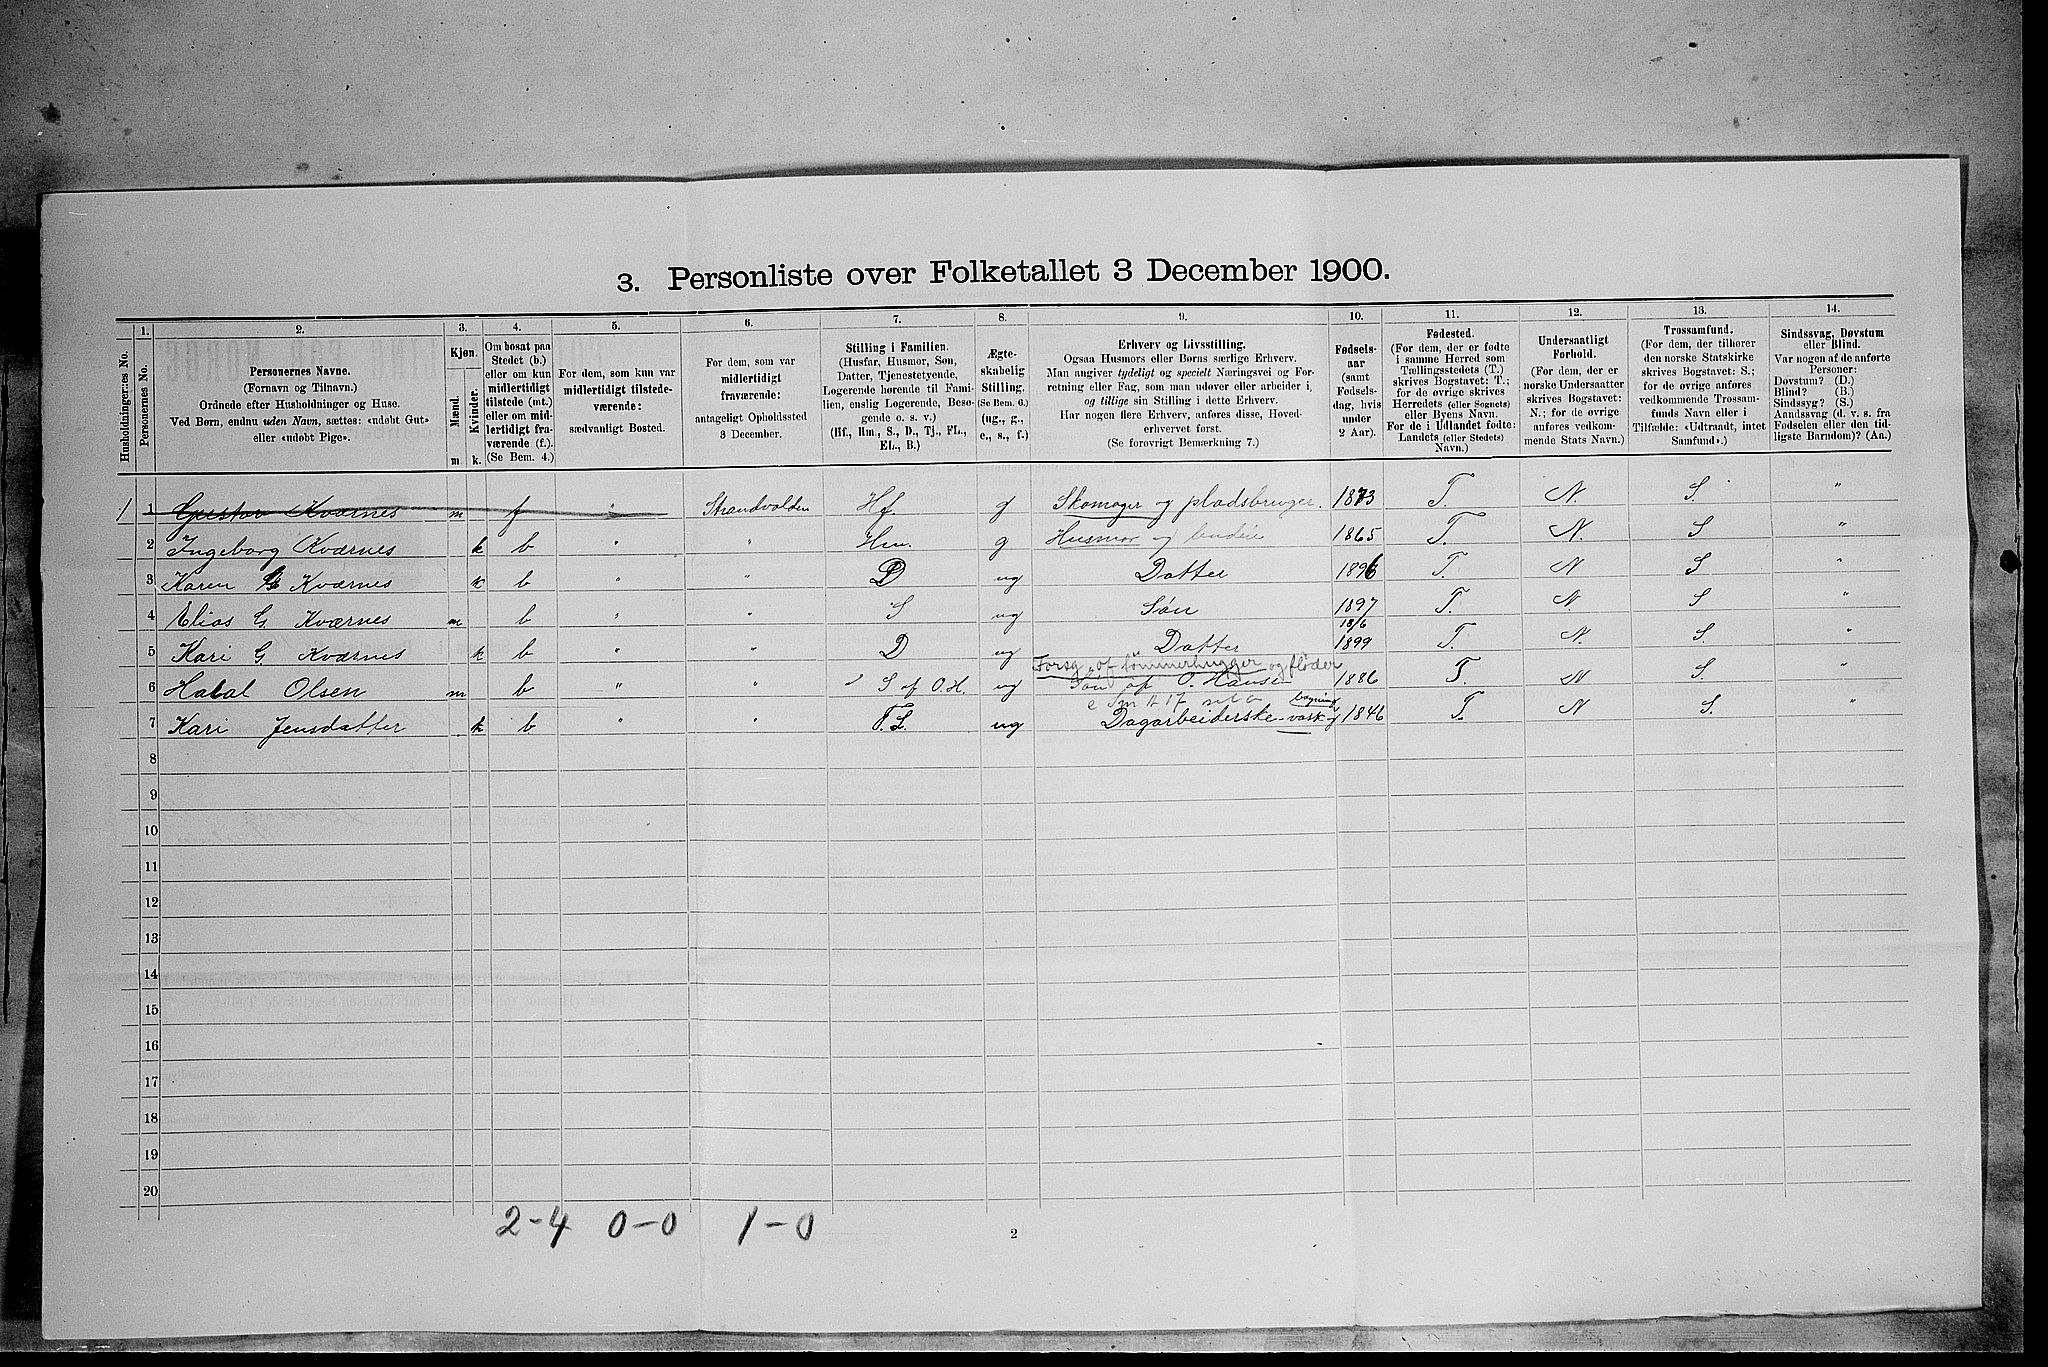 3. Personliste over Folketallet 3 December 1900.
1. 2. 3. 4. 5. 6. 7. 8. 9. 10. 11. 12. 13. 14.
Husholdningernes No.
Personernes No.
Personernes Navne.
(Fornavn og Tilnavn.)
Ordnede efter Husholdninger og Huse.
Ved Børn, endnu uden Navn, sættes: «udøbt Gut»
eller «udøbt Pige».
Kjøn.
Mænd.
Kvinder.
m k.
Om bosat paa
Stedet (b.)
eller om kun
midlertidigt
tilstede (mt.)
eller om mid-
lertidigt fra-
værende (f.).
(Se Bem. 4.)
For dem, som kun var
midlertidigt tilstede-
værende:
sædvanligt Bosted.
For dem, som var
midlertidigt
fraværende:
antageligt Opholdssted
3 December.
Stilling i Familien.
(Husfar, Husmor, Søn,
Datter, Tjenestetyende,
Logerende hørende til Fami-
lien, enslig Logerende, Besø-
gende o. s. v.)
(Hf., Hm., S., D., Tj., FL.,
EL., B.)
Ægte-
skabelig
Stilling.
(Se Bem. 6.)
(ug., g.,
e., s., f.)
Erhverv og Livsstilling.
Ogsaa Husmors eller Børns særlige Erhverv.
Man angiver tydeligt og specielt Næringsvei og For-
retning eller Fag, som man udøver eller arbeider i,
og tillige sin Stilling i dette Erhverv.
Har nogen flere Erhverv, anføres disse, Hoved-
erhvervet først.
(Se forøvrigt Bemærkning 7.)
Fødsels-
aar
(samt
Fødsels-
dag, hvis
under
2 Aar).
Fødested.
(For dem, der er fødte
i samme Herred som
Tællingsstedets (T.)
skrives Bogstavet: T.;
for de øvrige skrives
Herredets (eller Sognets)
eller Byens Navn.
For de i Udlandet fødte:
Landets (eller Stedets)
Navn.)
Undersaatligt
Forhold.
(For dem, der er
norske Undersaatter
skrives Bogstavet:
N.; for de øvrige
anføres vedkom-
mende Stats Navn.)
Trossamfund.
(For dem, der tilhører
den norske Statskirke
skrives Bogstavet: S.;
for de øvrige anføres
vedkommende Trossam-
funds Navn eller i
Tilfælde: «Udtraadt, intet
Samfund».)
Sindssvag, Døvstum
eller Blind.
Var nogen af de anførte
Personer:
Døvstum? (D.)
Blind? (B.)
Sindssyg? (S.)
Aandssvag (d. v. s. fra
Fødselen eller den tid-
ligste Barndom)? (Aa.)
1 1 Gustav Kværnes m f " Strandvolden Hf g Skomager og pladsbruger. 1873 T. N. S "
2 Ingeborg Kværnes k b " " Hm. g Husmor og 1865 T. N. S "
3 Karen G Kværnes k b " " D ug Datter 1896 T. N S "
4 Elias G. Kværnes m b " " S ug Søn 1897 T. N. S "
5 Kari G. Kværnes k b " " D ug " Datter 18/6 1899 T. N. S. "
Forsg. af tømmerhugger og fløder
6 Olsen m b " " S af O. H. ug Søn af O. Hansen 1886 T. N S. "
7 Kari Jensdatter k b " " F. L. ug Dagarbeiderske - vask og bagning 1846 T. N S. "
8
9
10
11
12
13
14
15
16
17
18
19
20
2-4 0-0 1-0
2